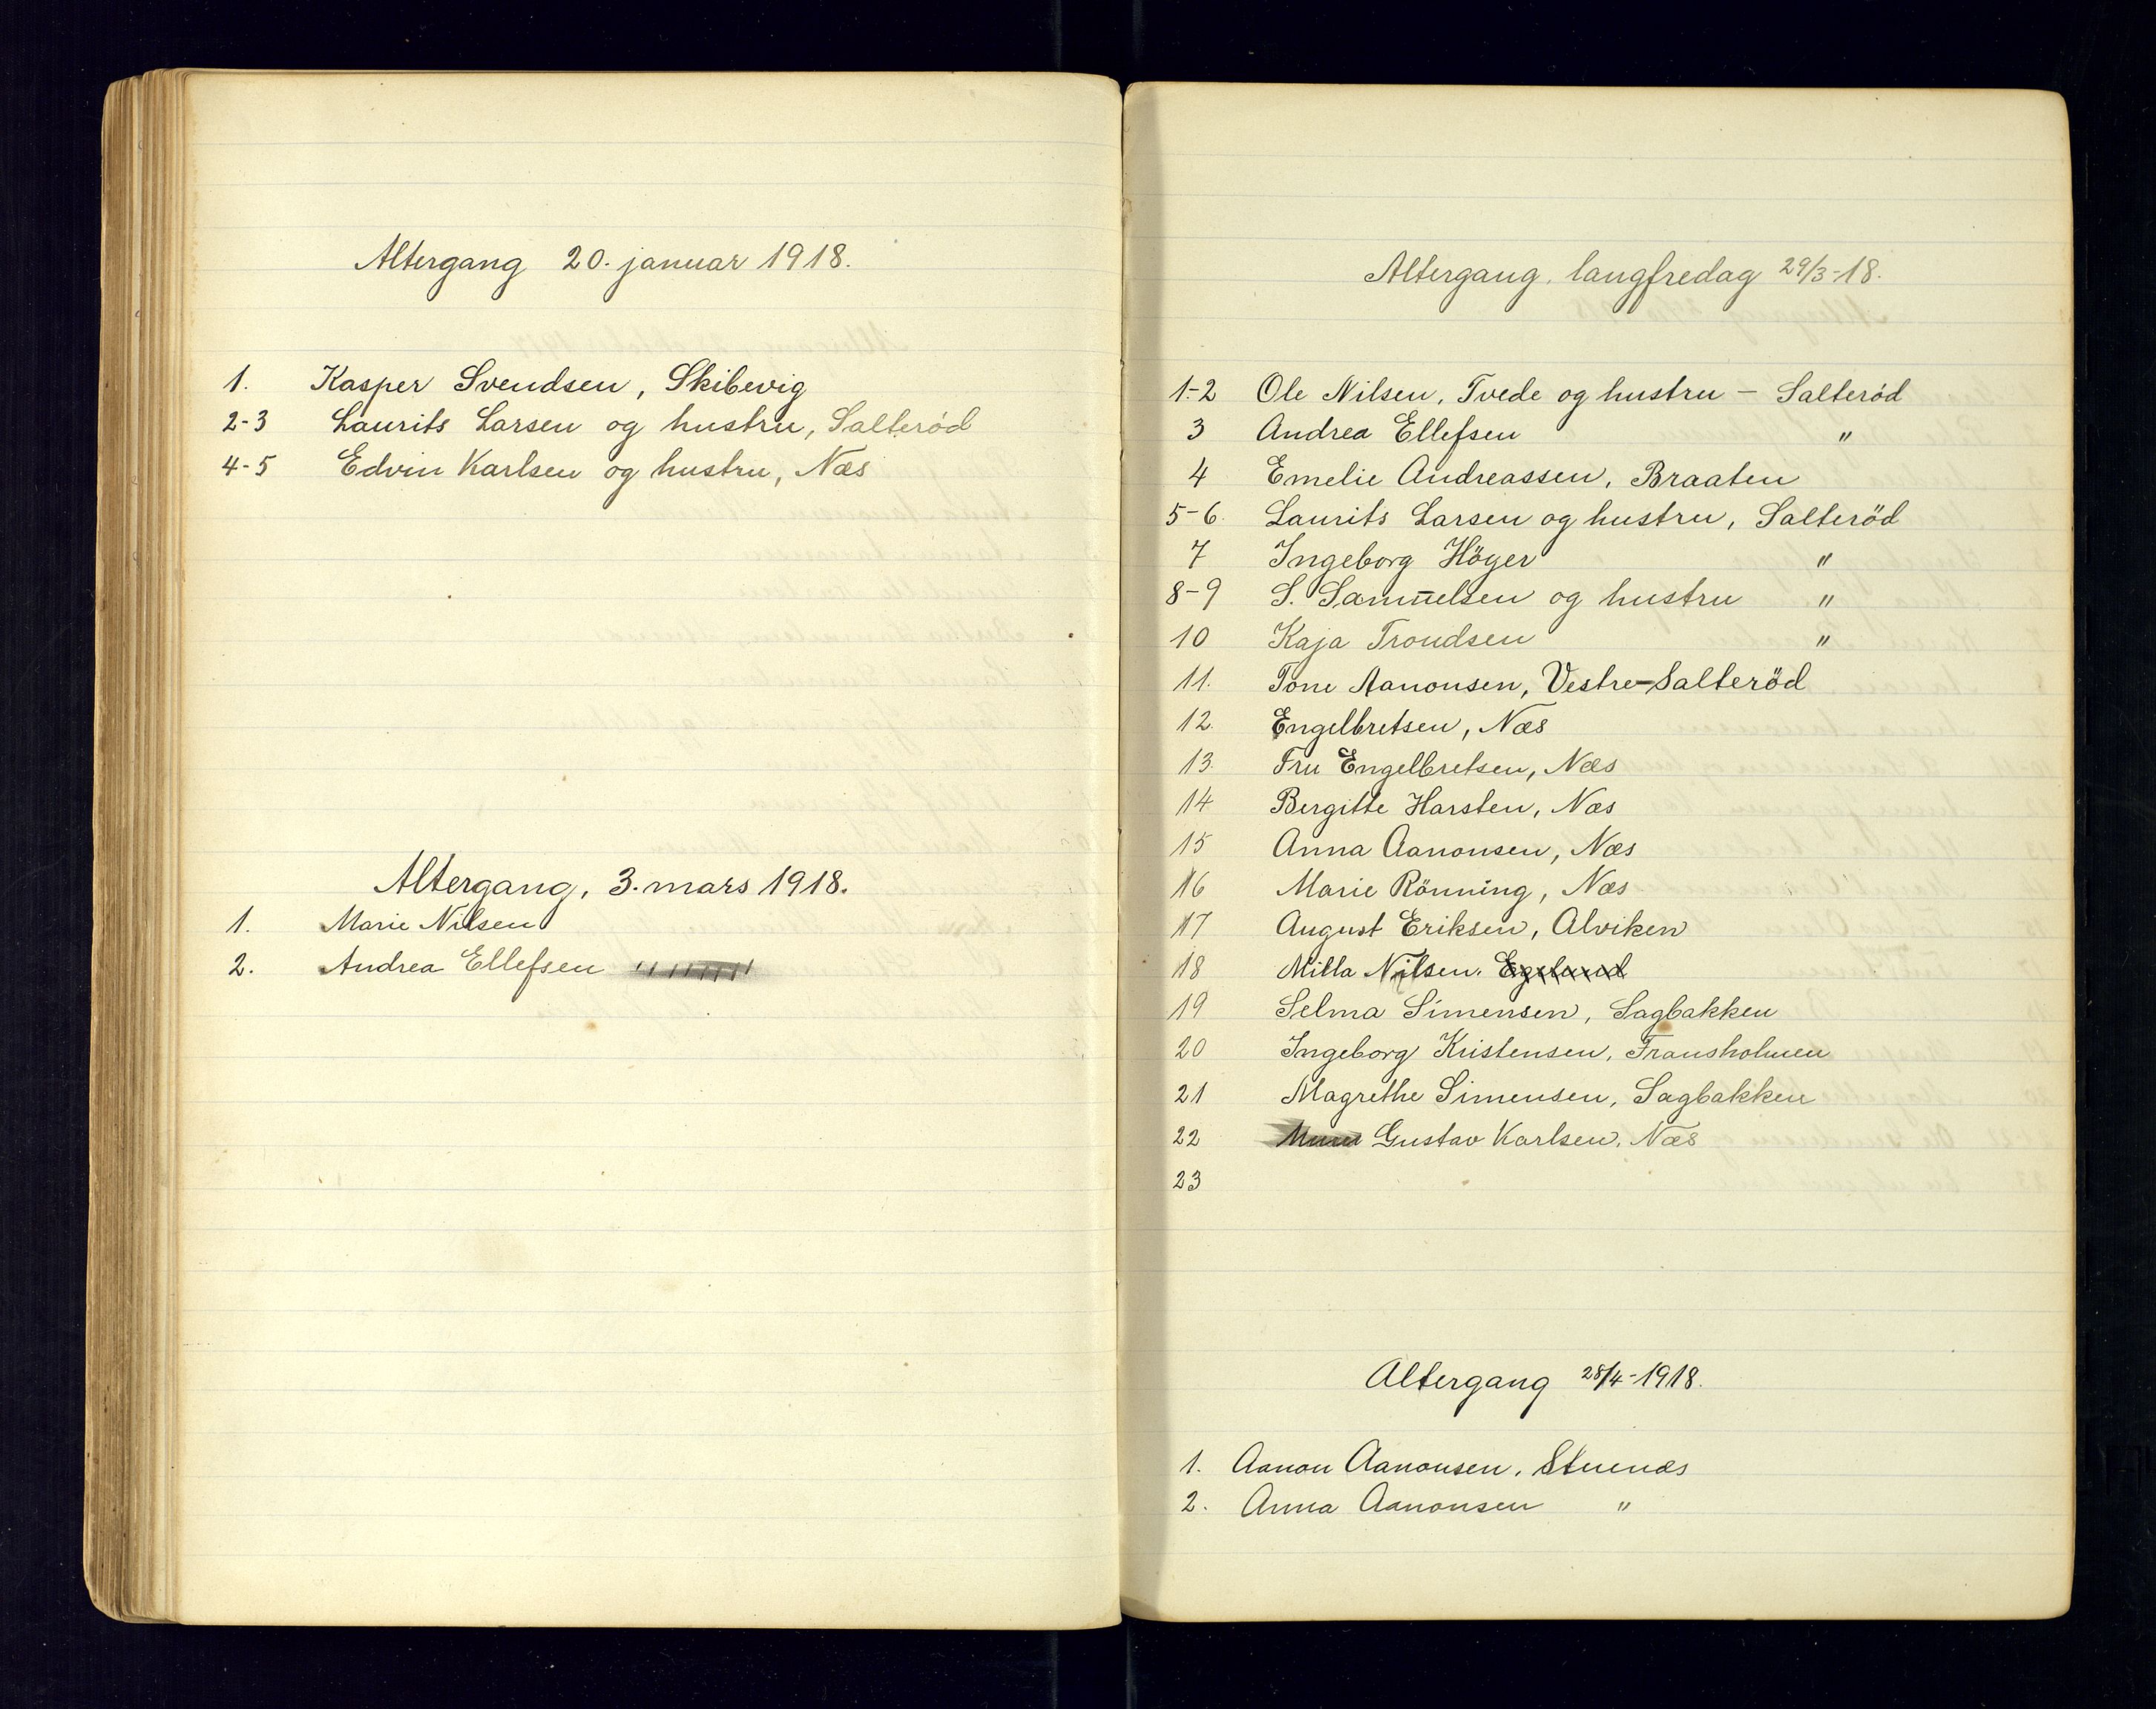 Altergang 20. januar 1918.
1. Kasper Svendsen, Skibevig
2-3 Laurits Larsen og hustru, Salteröd
4-5 Edvin Karlsen og hustru, Næs
Altergang, 3. mars 1918.
1. Marie Nilsen
2. Andrea Ellefsen
Altergang, langfredag 29/3-18.
1-2 Ole Nilsen, Tvede og hustru - Salteröd
3 Andrea Ellefsen "
4 Emelie Andreassen, Braaten
5-6. Laurits Larsen og hustru, Salteröd
7 Ingeborg Höyer "
8-9 S. Samuelsen og hustru "
10 Kaja Trondsen "
11. Tone Aanonsen, Vestre-Salteröd
12. Engelbretsen, Næs
13. Fru Engelbretsen, Næs
14 Bergitte Harsten, Næs
15 Anna Aanonsen, Næs
16 Marie Rönning, Næs
17 August Eriksen, Alviken
18 Milla Nilsen. Egeland
19 Selma Simensen, Sagbakken
20 Ingeborg Kristensen, Fransholmen
21 Magrethe Simensen, Sagbakken
22 Gustav Karlsen, Næs
23
Altergang 28/4-1918.
1. Aanon Aanonsen, Stuenæs
2. Anna Aanonsen "